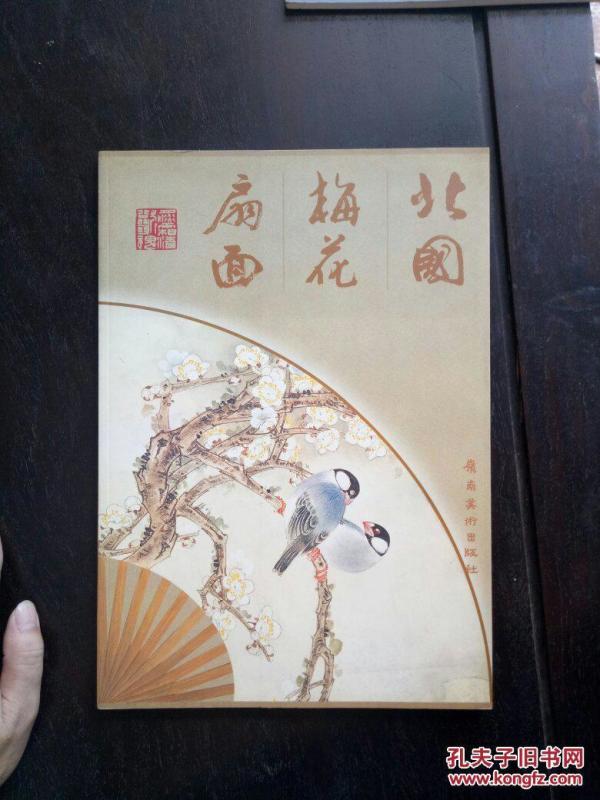 北國
梅花
扇面
嶺南美術出版社
孔夫子旧书网
www.kongfz.com